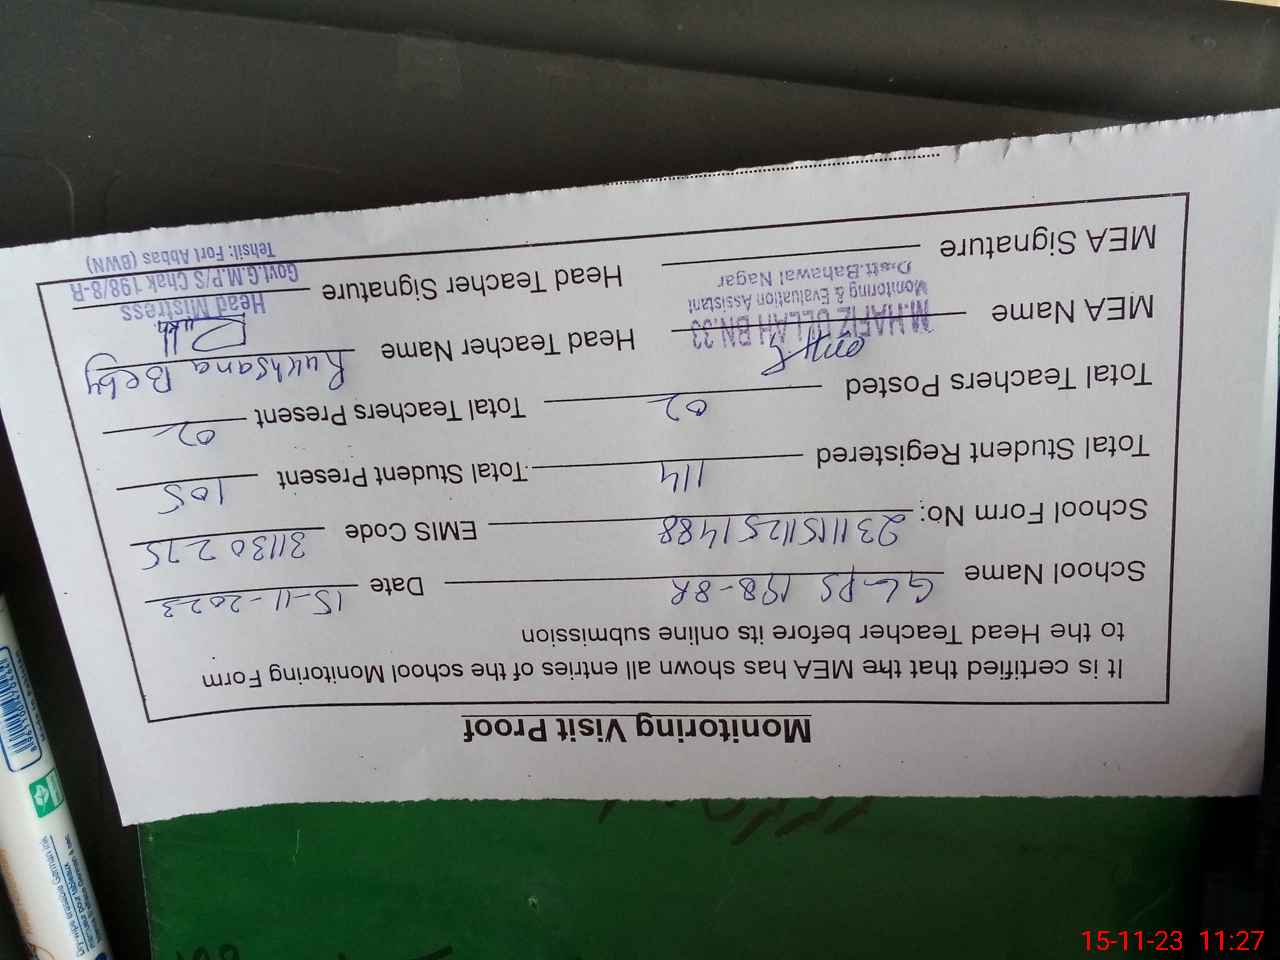 Monitoring Visit Proof
It is certified that the MEA has shown all entries of the school Monitoring Form
to the Head Teacher before its online submission
School Name GGPS 198-8R Date 15-11-2023
School Form No: 23111511251488 EMIS Code 31130275
Total Student Registered 114 Total Student Present 105
Total Teachers Posted 02 Total Teachers Present 02
MEA Name Head Teacher Name Rukhsana Beby
M.HAFIZ ULLAH BN.33
Monitoring & Evaluation Assistant
Distt.Bahawal Nagar
MEA Signature Head Teacher Signature
Head Mistress
Govt.G.M.P/S Chak 198/8-R
Tehsil: Fort Abbas (BWN)
15-11-23 11:27